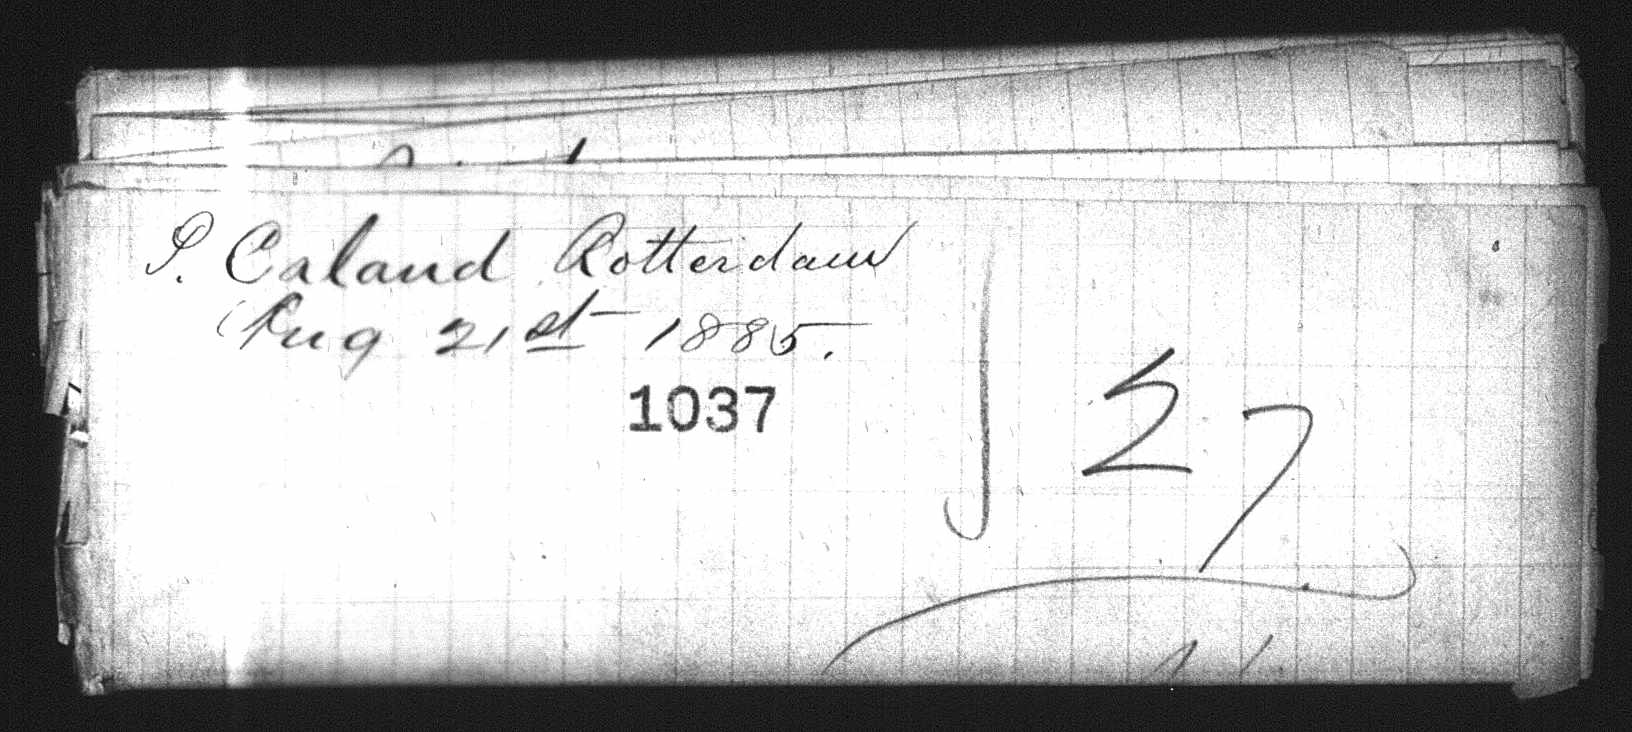 P. Caland Rotterdam
Aug 21st 1885.
1037
27